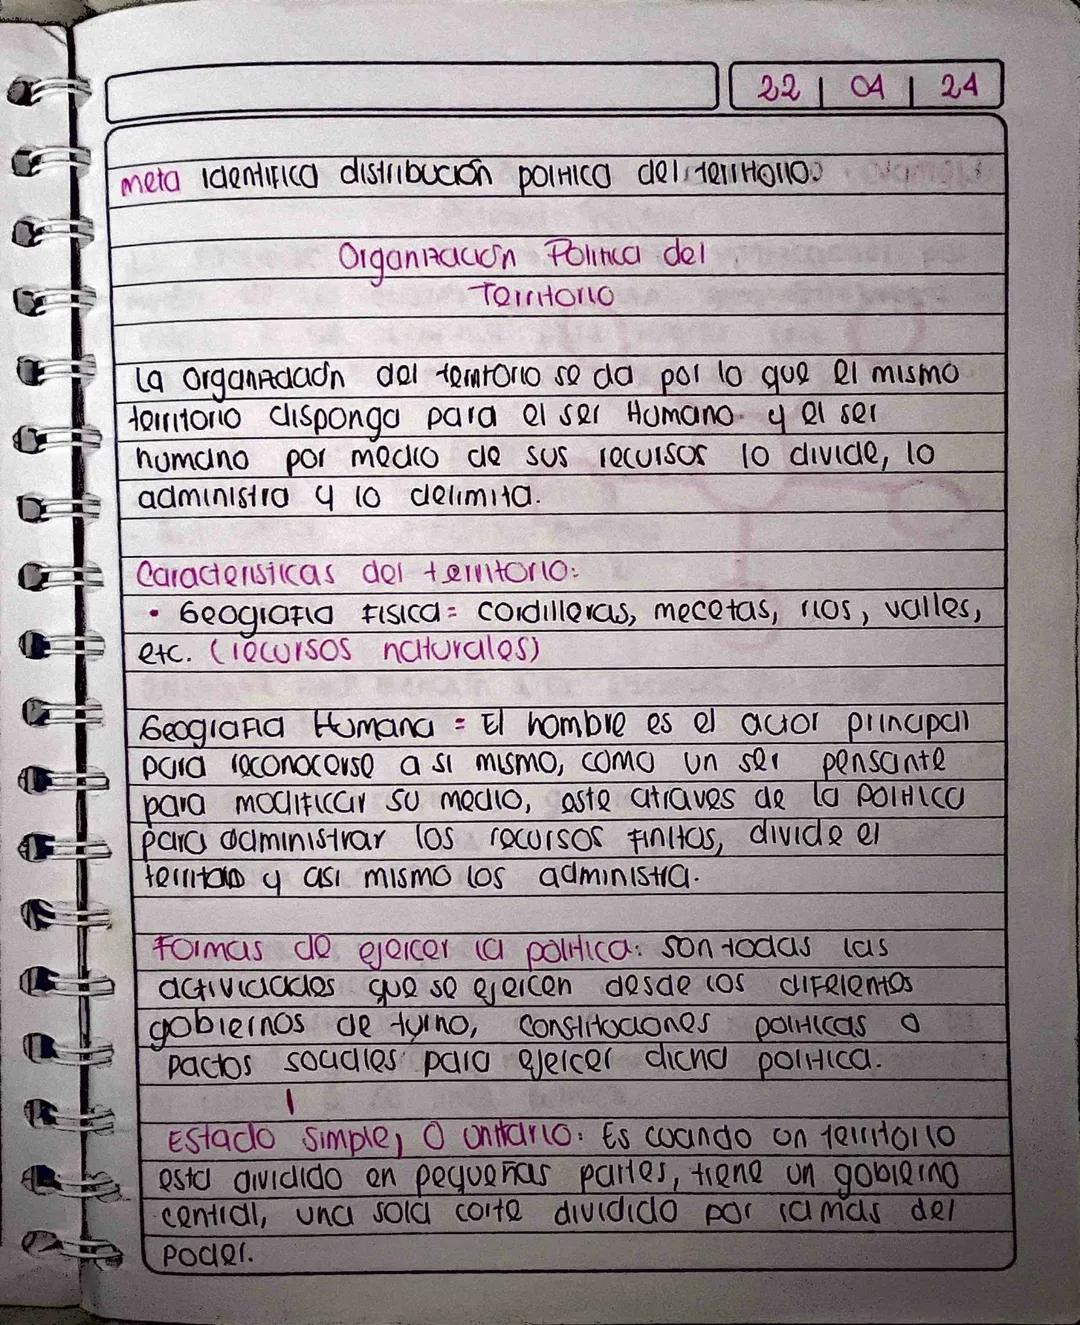 22 | 04 | 24
meta identifica distribución politica del territorio.
Organización Politica del
Territorio
La Organización del territorio se da por lo que el mismo
territorio disponga para el ser Humano. y el ser
humano por medio de sus recursos lo divide, lo
administra y lo delimita.
Caracteristicas del territorio:
• Geografia Fisica = cordilleras, mecetas, rios, valles,
etc. (recursos naturales)
Geografia Humana = El hombre es el actor principal
para reconocerse a si mismo, como un ser pensante
para modificar su medio, este atraves de la politica
para administrar los recursos finitos, divide el
territorio y asi mismo los administra.
Formas de ejercer la politica: son todas las
actividades que se ejercen desde los diferentos
gobiernos de turno, constituciones politicas o
pactos sociales para ejercer dicha politica.
1
Estado Simple, O unitario: Es cuando un territorio
esta dividido en pequeñas partes, tiene un gobierno
central, una sola corte dividido por ramas del
poder.